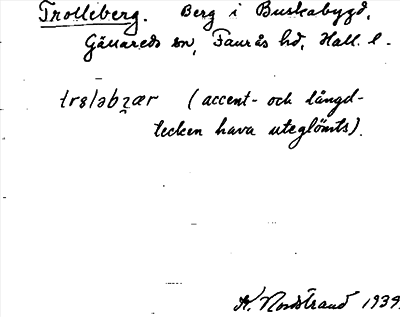 Trolleberg. Berg i Buskabygd,
Gällareds sn, Faurås hd, Hall. l.
trɞləbɀær (accent- och längd-
tecken hava uteglömts).
K. Nordstrand 1939.